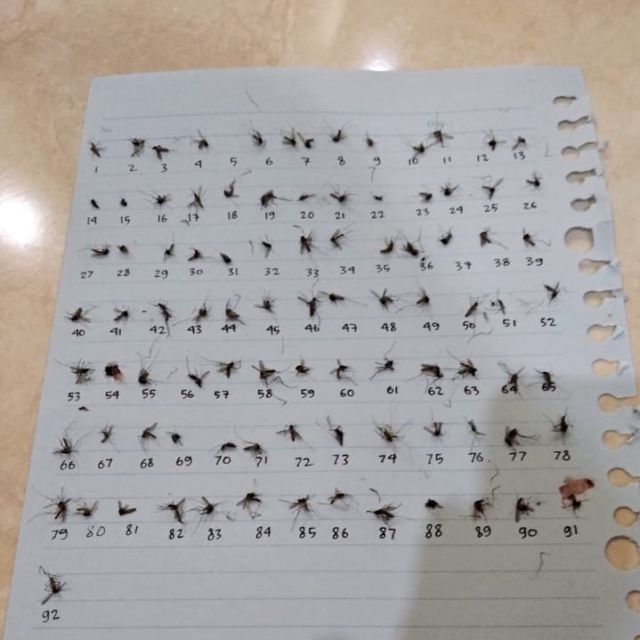 1 2 3 4 5 6 7 8 9 10 11 12 13
14 15 16 17 18 19 20 21 22 23 24 25 26
27 28 29 30 31 32 33 34 35 36 37 38 39
40 41 42 43 44 45 46 47 48 49 50 51 52
53 54 55 56 57 58 59 60 61 62 63 64 65
66 67 68 69 70 71 72 73 74 75 76 77 78
79 80 81 82 83 84 85 86 87 88 89 90 91
92